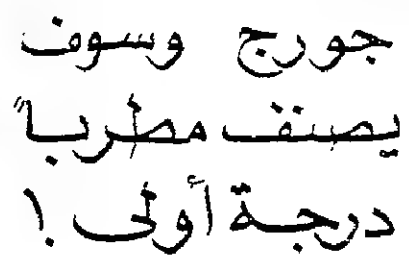 جورج وسوف
يصنف مطرباً
درجة أولى !